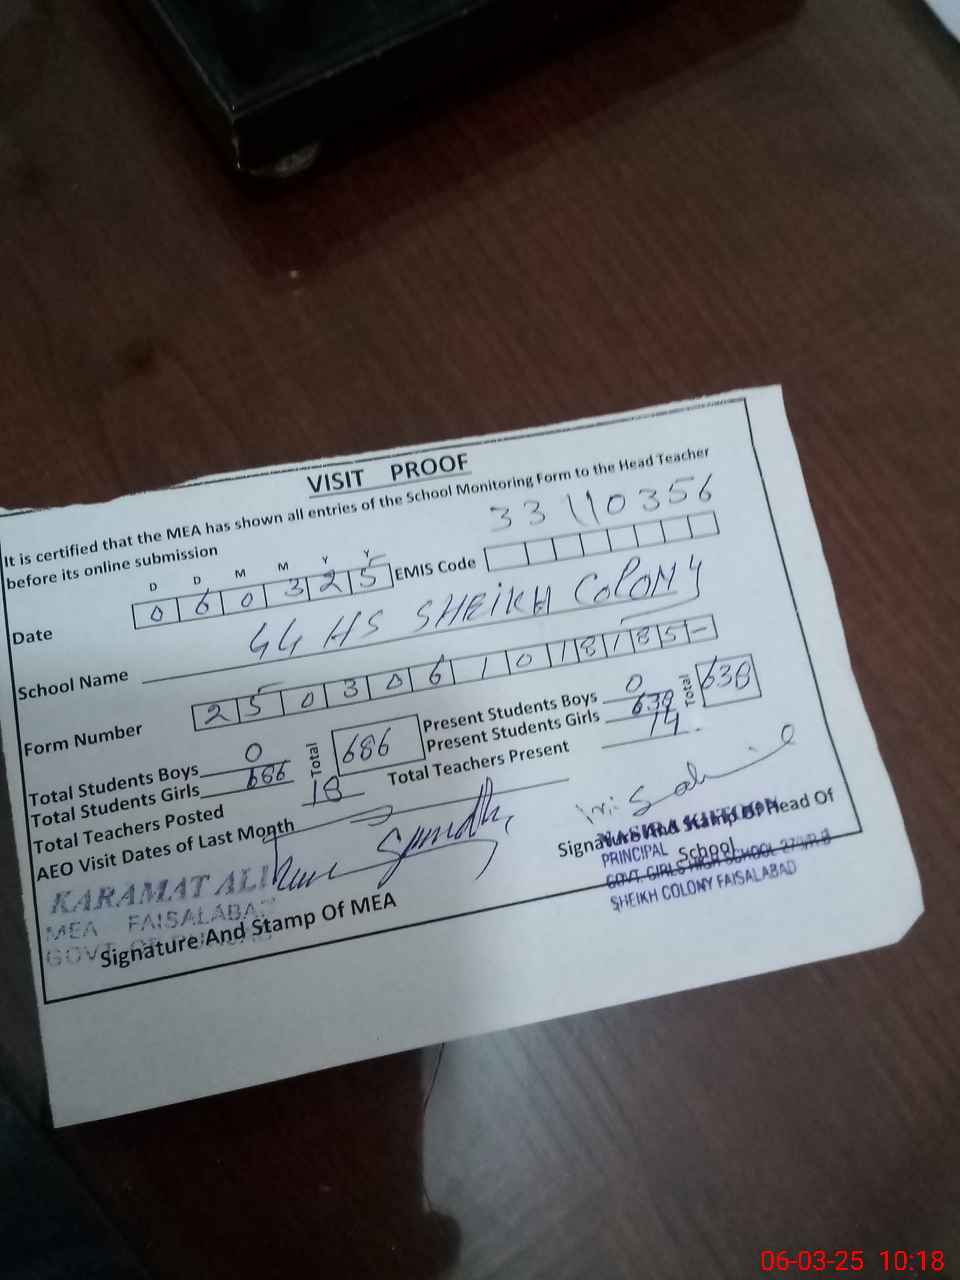 VISIT PROOF
It is certified that the MEA has shown all entries of the School Monitoring Form to the Head Teacher
before its online submission
33110356
D D M M Y Y
Date 0 6 0 3 2 5 EMIS Code
School Name GG HS SHEIKH COLONY
Form Number 2 5 0 3 0 6 1 0 18 18 5 -
Total Students Boys 0 Total 686 Present Students Boys 0 Total 638
Total Students Girls 686 Present Students Girls 638
Total Teachers Posted 18 Total Teachers Present 14
AEO Visit Dates of Last Month
KARAMAT ALI
MEA FAISALABAD
GOVT
Signature And Stamp Of MEA
Signature And Stamp Of Head Of
School
PRINCIPAL
GOVT. GIRLS HIGH SCHOOL
SHEIKH COLONY FAISALABAD
06-03-25 10:18